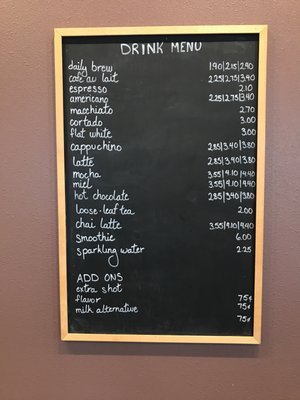 DRINK MENU
daily brew 1.90|2.15|2.40
café au lait 2.25|2.75|3.40
espresso 2.10
americano 2.25|2.75|3.40
macchiato 2.70
cortado 3.00
flat white 3.00
cappuchino 2.85|3.40|3.80
latte 2.85|3.40|3.80
mocha 3.55|4.10|4.40
miel 3.55|4.10|4.40
hot chocolate 2.85|3.40|3.80
loose-leaf tea 2.00
chai latte 3.55|4.10|4.40
smoothie 6.00
sparkling water 2.25
ADD ONS
extra shot
flavor 75¢
milk alternative 75¢
75¢